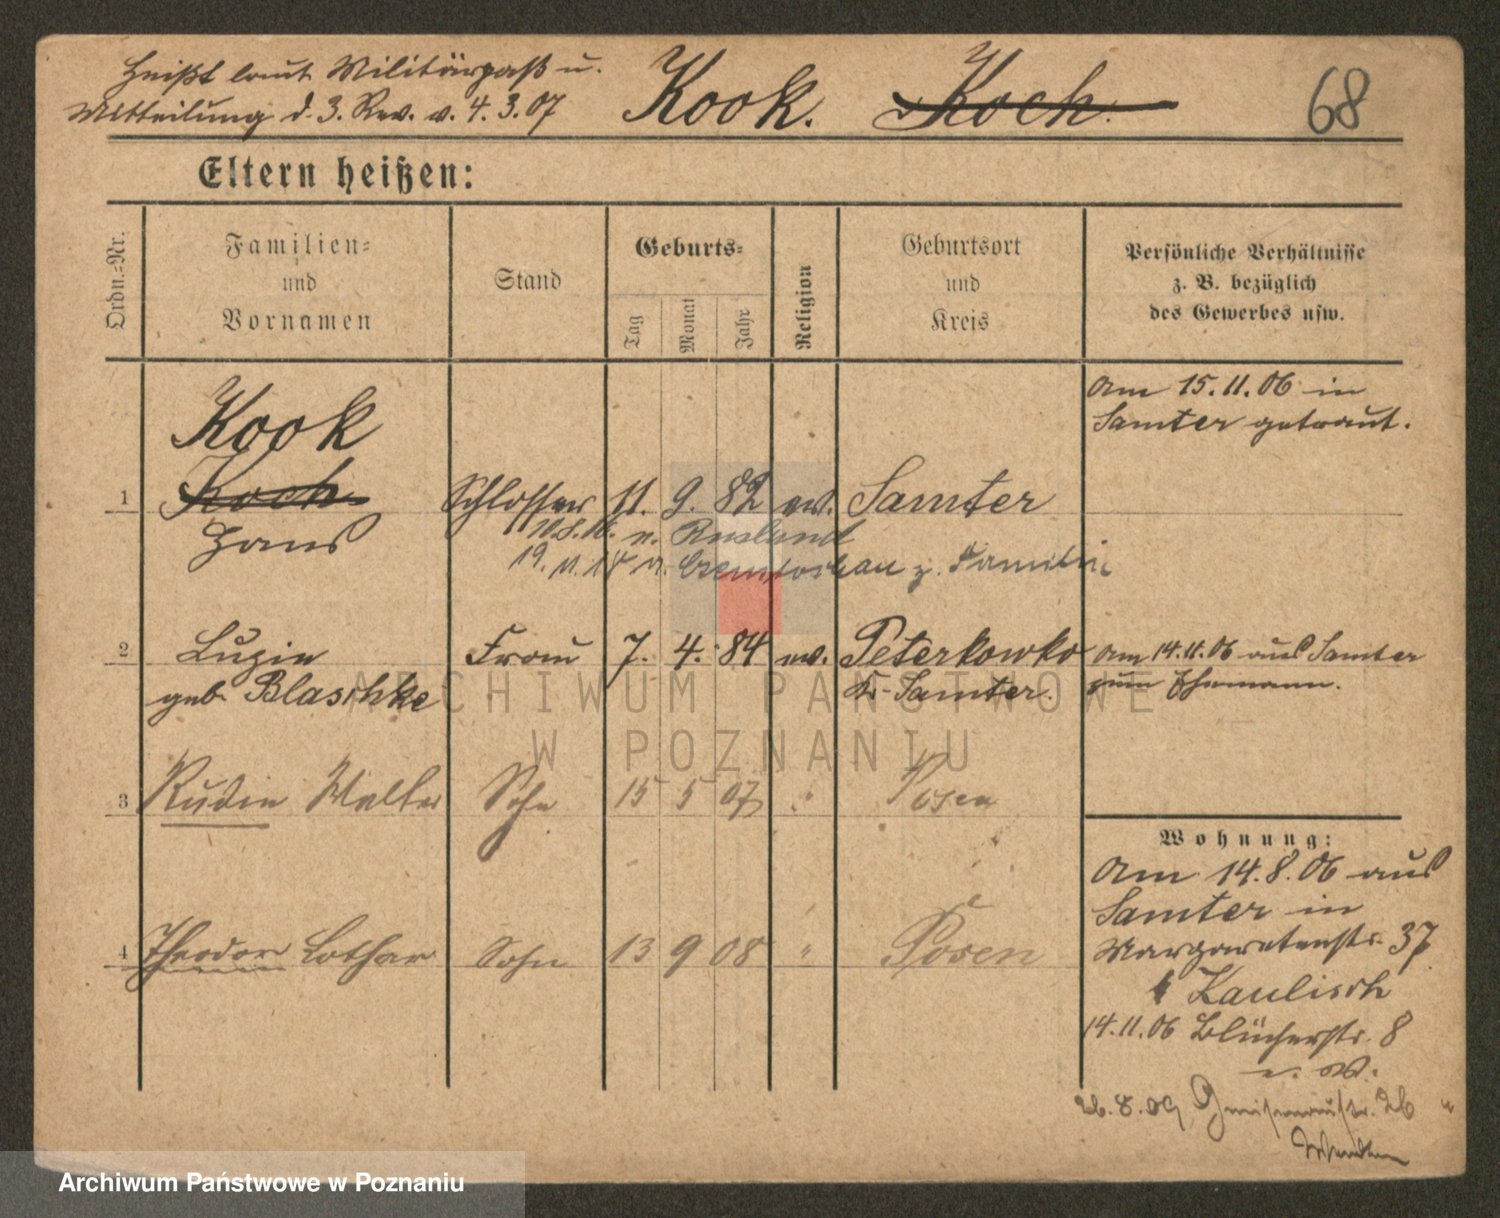 Heißt laut Militärpaß u.
Mitteilung d. 3. Rev. v. 4.3.07
Kook. Koch.
68
Eltern heißen:
Ordn.-Nr.
Familien-
und
Vornamen
Stand
Geburts-
Tag
Monat
Jahr
Religion
Geburtsort
und
Kreis
Persönliche Verhältnisse
z. B. bezüglich
des Gewerbes usw.
Am 15.11.06 in
Samter getraut.
Kook
1 Koch Schlosser 11. 9. 82 ev. Samter
Hans
n. Rusland
19. 11. 18 z. Familie
2 Luzie Frau 7. 4. 84 ev. Peterkowko
geb. Blaschke Kr. Samter.
Am 14.11.06 aus Samter
zum Ehemann.
3 Walter Sohn 15 5 07 " Posen
4 Theodor Lothar Sohn 13 9 08 " Posen
Wohnung:
Am 14.8.06 aus
Samter in
Margaretenstr. 37
Kaulisch
14.11.06 Blücherstr. 8
e. W.
26.8.09 Gneisenaustr. 26
ARCHIWUM PAŃSTWOWE
W POZNANIU
Archiwum Państwowe w Poznaniu